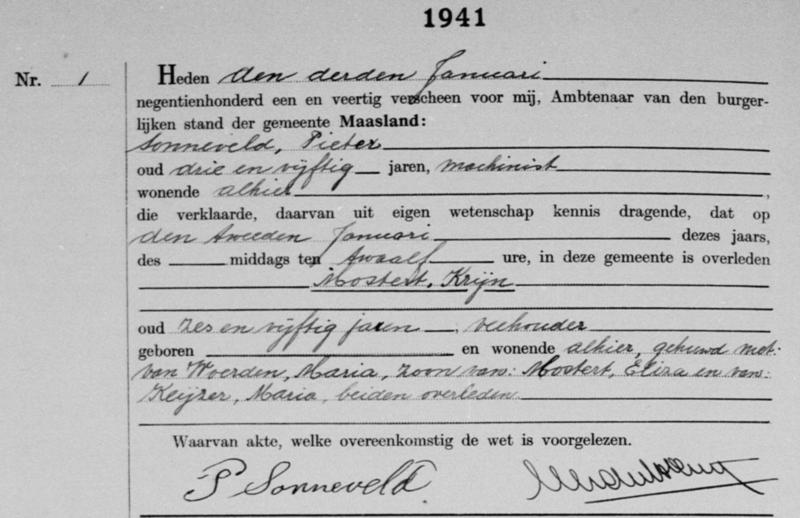 1941
Nr. 1
Heden den derden Januari
negentienhonderd een en veertig verscheen voor mij, Ambtenaar van den burger-
lijken stand der gemeente Maasland:
Sonneveld, Pieter
oud drie en vijftig jaren, machinist
wonende alhier,
die verklaarde, daarvan uit eigen wetenschap kennis dragende, dat op
den tweeden Januari dezes jaars,
des middags ten twaalf ure, in deze gemeente is overleden
Mostert, Krijn
oud zes en vijftig jaren, veehouder
geboren en wonende alhier, gehuwd met:
van Woerden, Maria, zoon van: Mostert, Eliza en van:
Keijzer, Maria, beiden overleden.
Waarvan akte, welke overeenkomstig de wet is voorgelezen.
P Sonneveld.